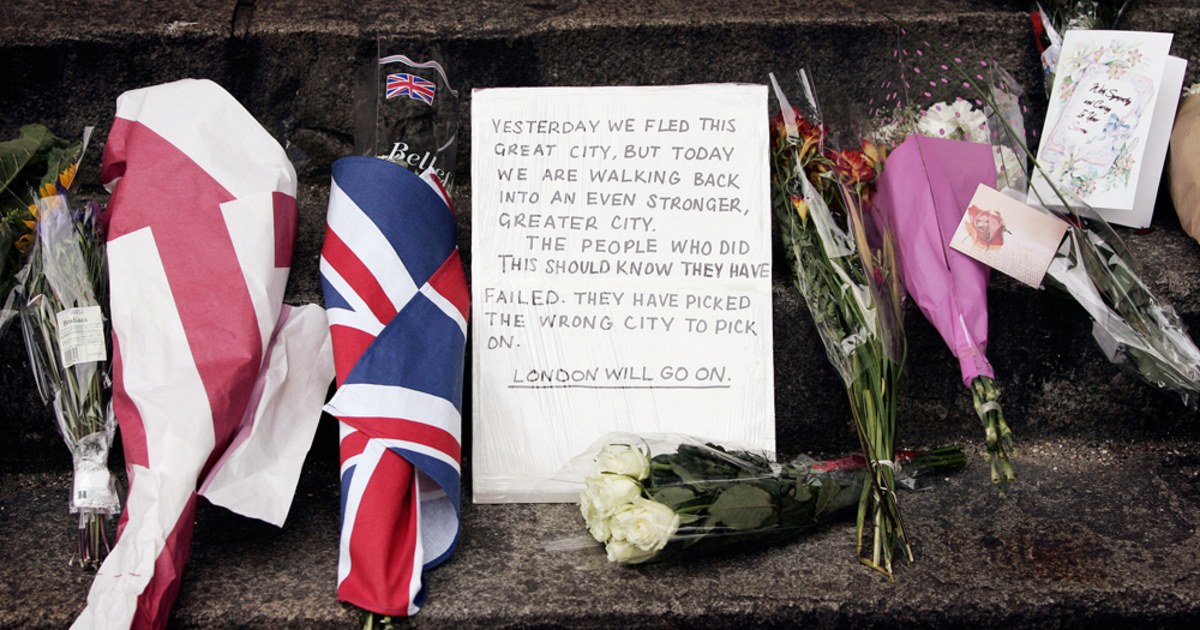 Bell
YESTERDAY WE FLED THIS
GREAT CITY, BUT TODAY
WE ARE WALKING BACK
INTO AN EVEN STRONGER,
GREATER CITY.
THE PEOPLE WHO DID
THIS SHOULD KNOW THEY HAVE
FAILED. THEY HAVE PICKED
THE WRONG CITY TO PICK
ON.
LONDON WILL GO ON.
With Sympathy
and Caring